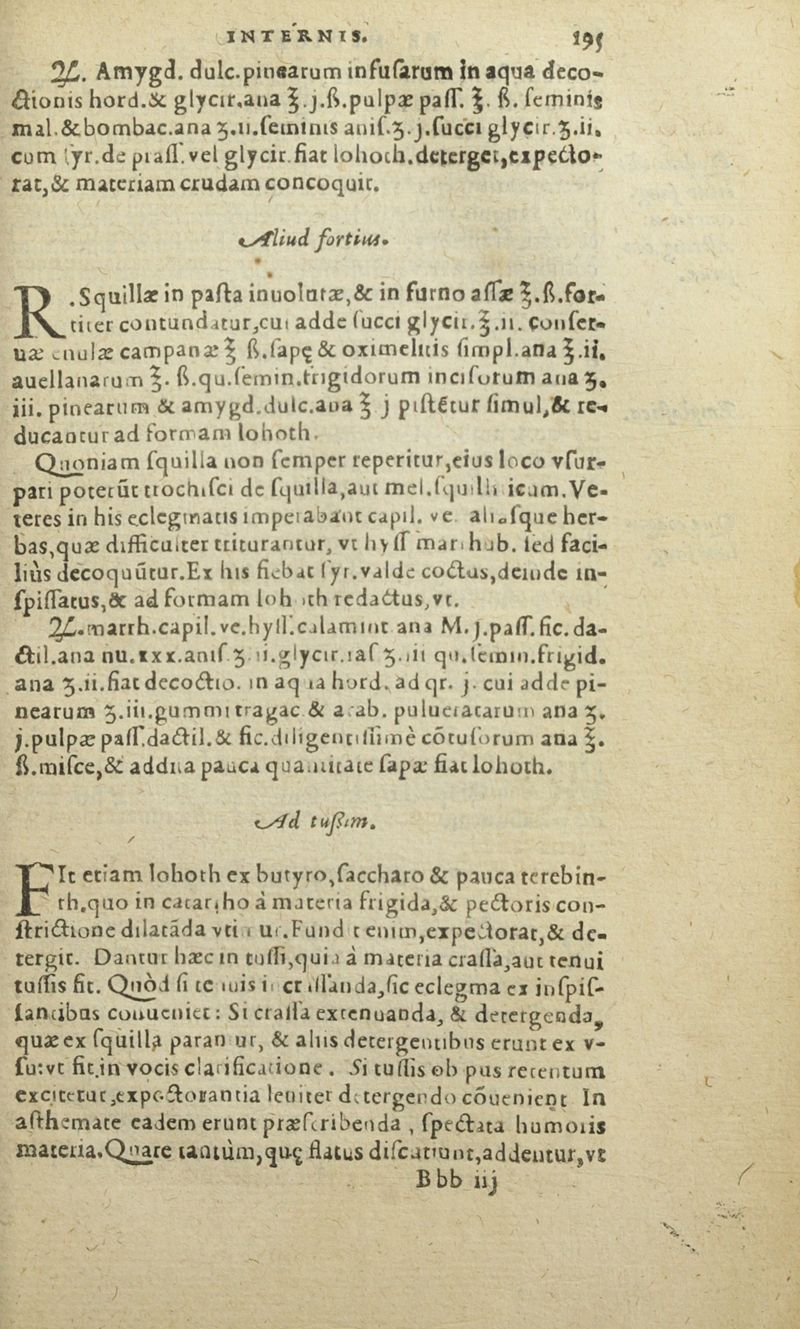 INTERNIS. 195
♃. Amygd. dulc.pinearum infusarum in aqua deco-
ctionis hord.& glycir.ana ℥.j.ß.pulpæ pass. ℥. ß. seminis
mal.&bombac.ana ʒ.ii.seminis anis.ʒ.j.succi glycir.ʒ.ii.
cum syr.de prass.vel glycir.fiat lohoch.deterget,expecto-
rat,& materiam crudam concoquit.
Aliud fortius.
R.Squillæ in pasta inuolutæ,& in furno assæ ℥.ß.for-
titer contundatur,cui adde succi glycir.℥.ii. conser-
uæ enulæ campanæ ℥ ß.sapę & oximelitis simpl.ana ℥.ii.
auellanarum ℥. ß.qu.semin.frigidorum incisorum ana ʒ.
iii. pinearum & amygd.dulc.ana ℥ j pistētur simul,& re-
ducantur ad formam lohoth.
Quoniam squilla non semper reperitur,eius loco vsur-
pari poterūt trochisci de squilla,aut mel.squilliticum.Ve-
teres in his eclegmatis imperabant capil. ve. aliasque her-
bas,quæ difficulter triturantur, vt hyss marrhub. sed faci-
lius decoquūtur.Ex his fiebat syr.valde coctus,deinde in-
spissatus,& ad formam lohoth redactus,vt.
♃.marrh.capil.ve.hyss.calamint ana M.j.pass.fic.da-
ctil.ana nu.xxx.anis.ʒ ii.glycir.ras ʒ.iii qu.semin.frigid.
ana ʒ.ii.fiat decoctio. in aqua hord. ad qr. j. cui adde pi-
nearum ʒ.iii.gummi tragac & arab. pulueratarum ana ʒ.
j.pulpæ pass.dactil.& fic.diligentissimè cōtusorum ana ℥.
ß.misce,& addita pauca quantitate sapæ fiat lohoth.
Ad tussim.
FIt etiam lohoth ex butyro,saccharo & pauca terebin-
th.quo in catarrho à materia frigida,& pectoris con-
strictione dilatāda vtimur.Fundit enim,expectorat,& de-
tergit. Dantur hæc in tussi,quia à materia crassa,aut tenui
tussis fit. Quòd si tenuis incrassanda,sic eclegma ex inspis-
santibus conueniet: Si crassa extenuanda, & detergenda,
quæ ex squilla parantur, & aliis detergentibus erunt ex v-
su:vt fit.in vocis clarificatione . Si tussis ob pus retentum
excitetur,expectorantia leniter detergendo cōuenient In
asthemate eadem erunt præscribenda , spectata humoris
materia.Quare tantùm,quę flatus discutiunt,addentur,vt
Bbb iij